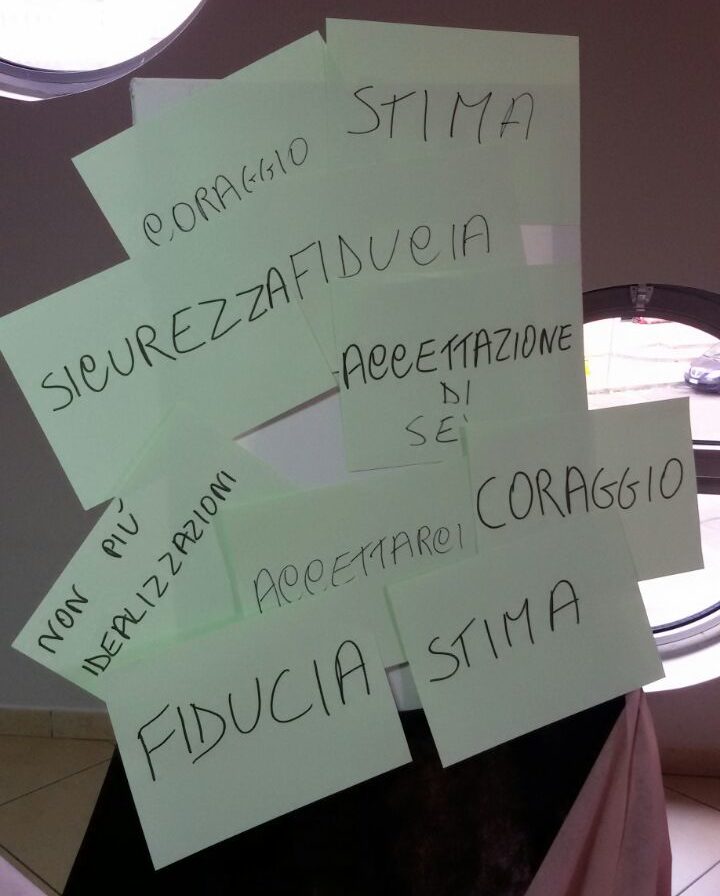 STIMA
CORAGGIO
FIDUCIA
SICUREZZA
ACCETTAZIONE
DI
SE'
CORAGGIO
NON PIÚ
IDEALIZZAZIONI
ACCETTARCI
STIMA
FIDUCIA